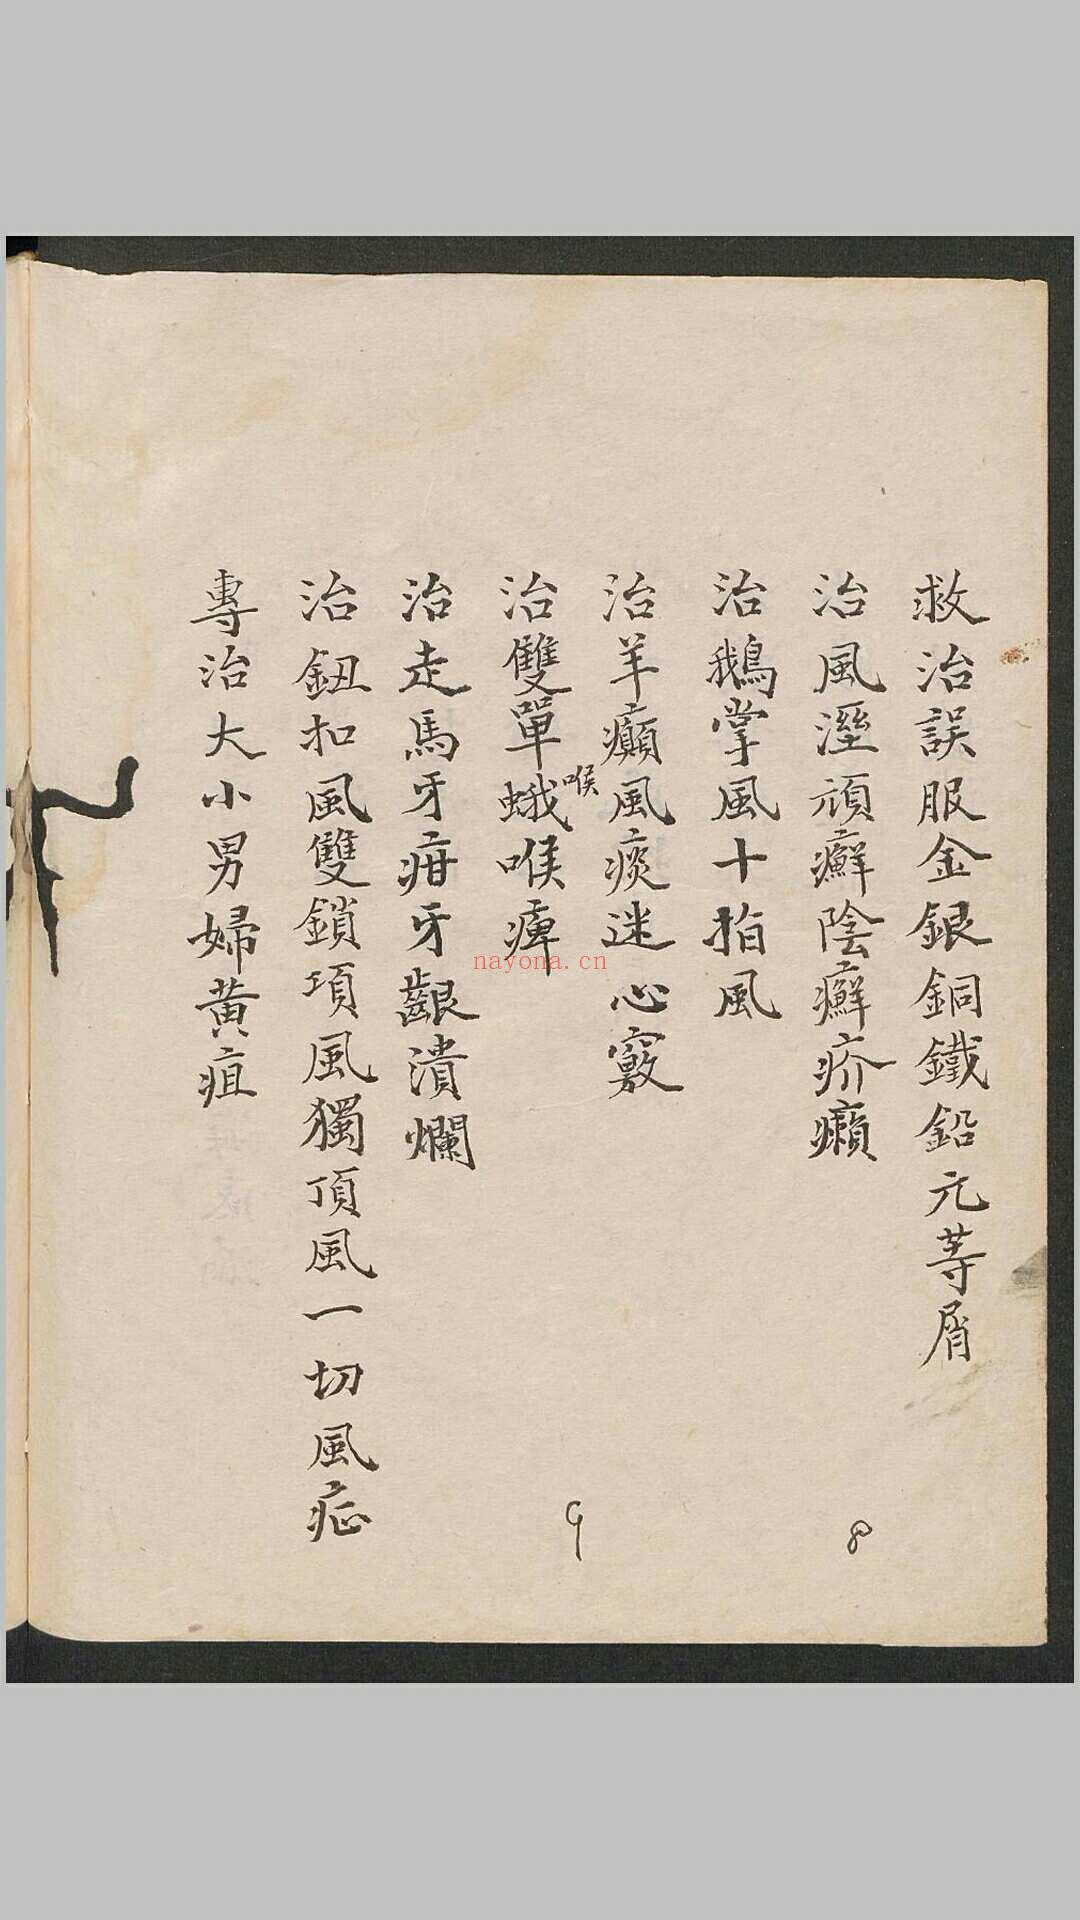 救治誤服金銀銅鐵鉛元等屑
治風溼頑癬陰癬疥癩
治鵝掌風十指風
治羊癲風痰迷心竅
治雙單蛾喉痺
喉
治走馬牙疳牙齦潰爛
治鈕扣風雙鎖項風獨頂風一切風症
專治大小男婦黃疸
nayona.cn
9
8